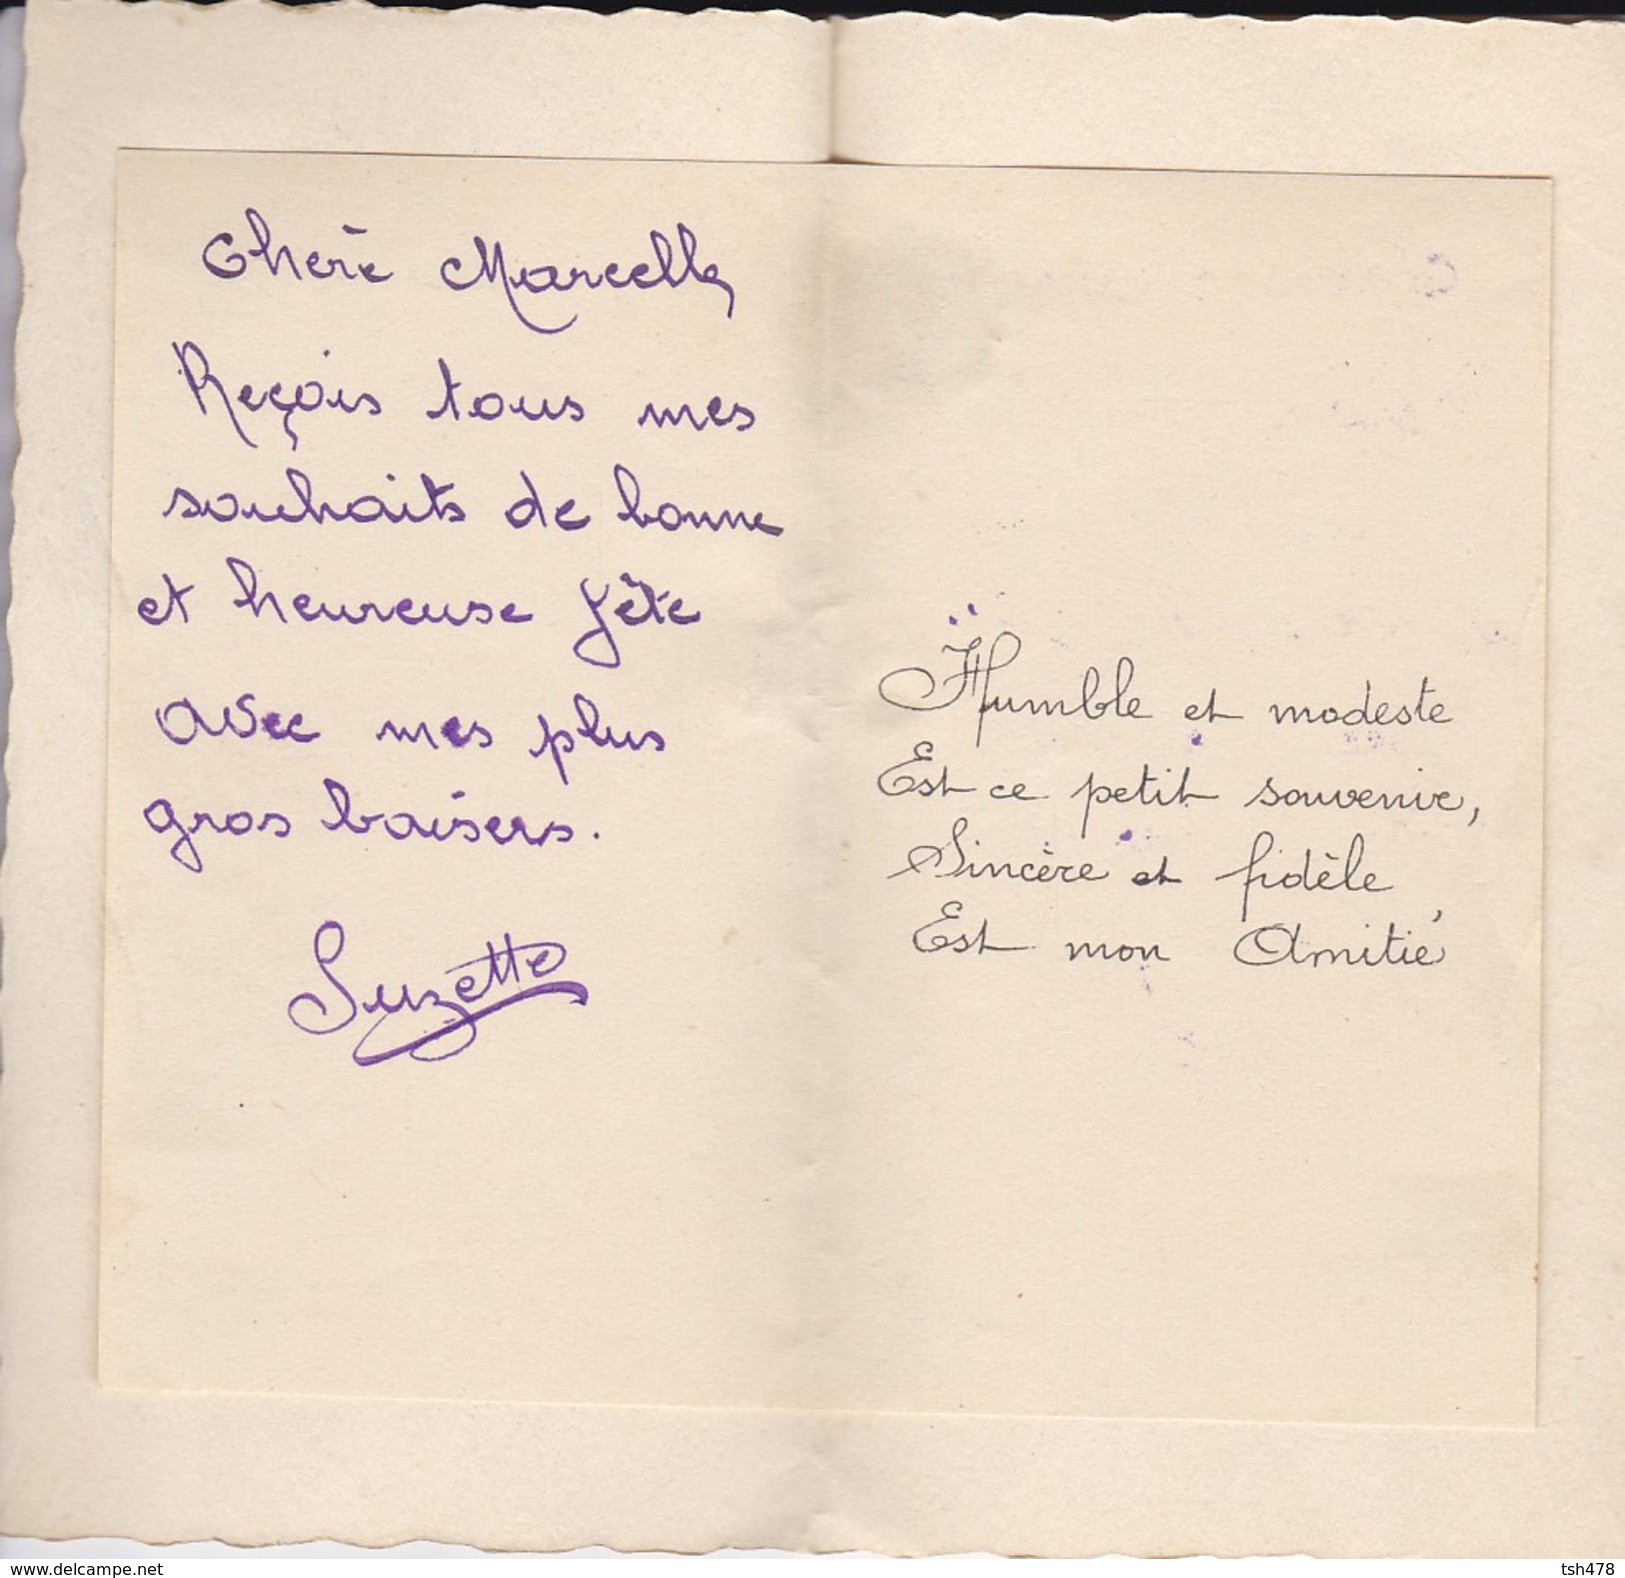 Chère Marcelle
Reçois tous mes
souhaits de bonne
et heureuse fête
avec mes plus
gros baisers.
Suzette
Humble et modeste
Est ce petit souvenir,
Sincère et fidèle,
Est mon Amitié
www.delcampe.net
tsh478